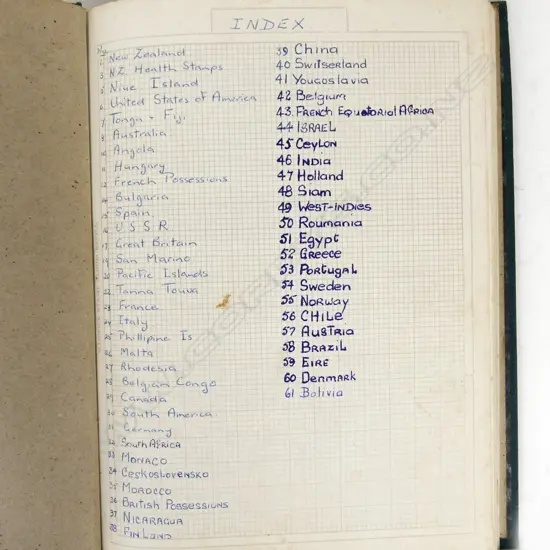 INDEX
No
New Zealand
3 N.Z. Health Stamps
5 Niue Island
6 United States of America
7 Tonga - Fiji
8 Australia
10 Angola
11 Hungary
12 French Possessions
14 Bulgaria
15 Spain
16 U S S R
17 Great Britain
19 San Marino
20 Pacific Islands
22 Tanna Touva
23 France
24 Italy
25 Phillipine Is
26 Malta
27 Rhodesia
28 Belgian Congo
29 Canada
30 South America
31 Germany
32 South Africa
33 Monaco
34 Ceskoslovensko
35 Morocco
36 British Possessions
37 Nicaragua
38 Finland
39 China
40 Switserland
41 Yougoslavia
42 Belgium
43 French Equatorial Africa
44 ISRAEL
45 Ceylon
46 India
47 Holland
48 Siam
49 West-Indies
50 Roumania
51 Egypt
52 Greece
53 Portugal
54 Sweden
55 Norway
56 CHILe
57 Austria
58 Brazil
59 Eire
60 Denmark
61 Bolivia